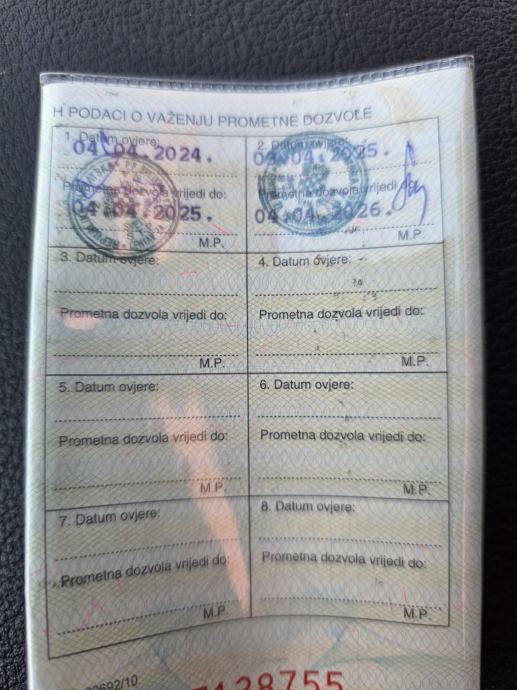 H PODACI O VAŽENJU PROMETNE DOZVOLE
1. Datum ovjere:
04.04.2024.
Prometna dozvola vrijedi do:
04.04.2025.
M.P.
2. Datum ovjere:
03.04.2025.
Prometna dozvola vrijedi
04.04.2026.
M.P.
3. Datum ovjere:
Prometna dozvola vrijedi do:
M.P.
4. Datum ovjere:
Prometna dozvola vrijedi do:
M.P.
5. Datum ovjere:
Prometna dozvola vrijedi do:
M.P.
6. Datum ovjere:
Prometna dozvola vrijedi do:
M.P.
7. Datum ovjere:
Prometna dozvola vrijedi do:
M.P.
8. Datum ovjere:
Prometna dozvola vrijedi do:
M.P.